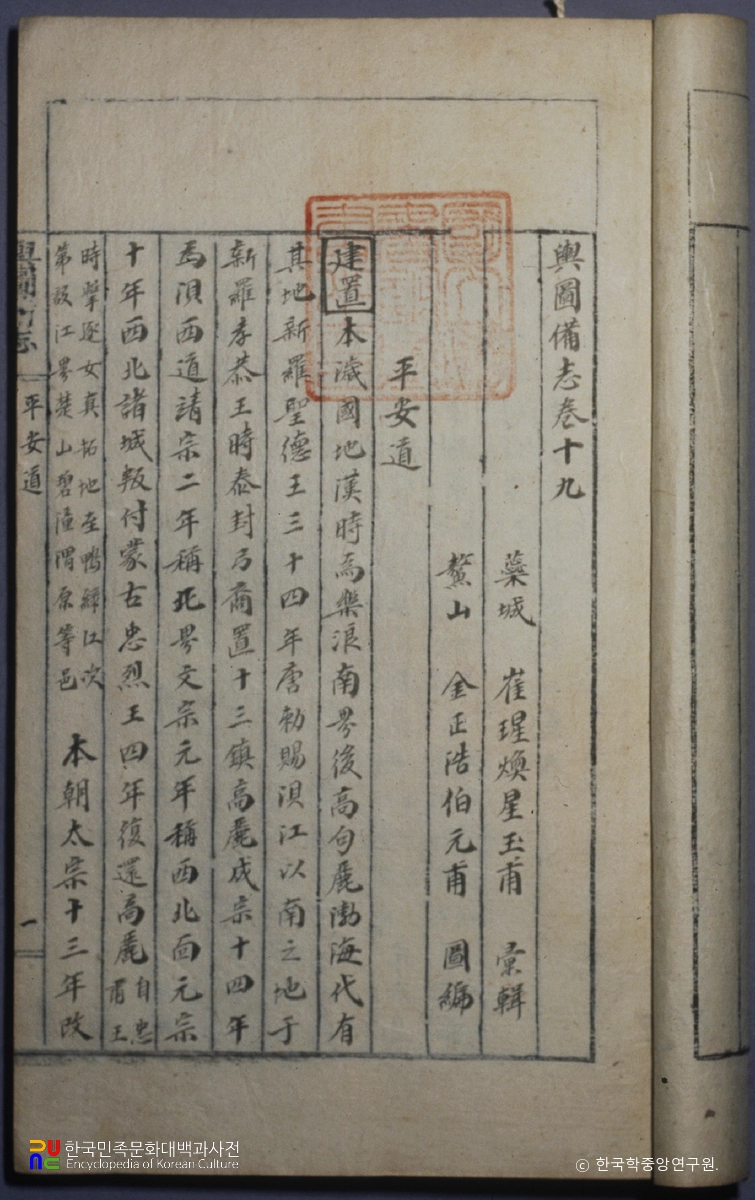 輿圖備志卷十九
藥城 崔瑆煥星玉甫 彙輯
鰲山 金正浩伯元甫 圖編
平安道
建置 本濊國地漢時爲樂浪南界後高句麗渤海代有
其地新羅聖德王三十四年唐勅賜浿江以南之地于
新羅孝恭王時泰封乃商置十三鎮高麗成宗十四年
爲浿西道請宗二年稱北界文宗元年稱西北面元宗
十年西北諸城叛付蒙古忠烈王四年復還高麗 自忠
肅王
時擧逐女真拓地至鴨綠江次
第設江界楚山碧潼渭原等邑
本朝太宗十三年改
輿圖備志
平安道
一
한국민족문화대백과사전
Encyclopedia of Korean Culture
ⓒ 한국학중앙연구원.